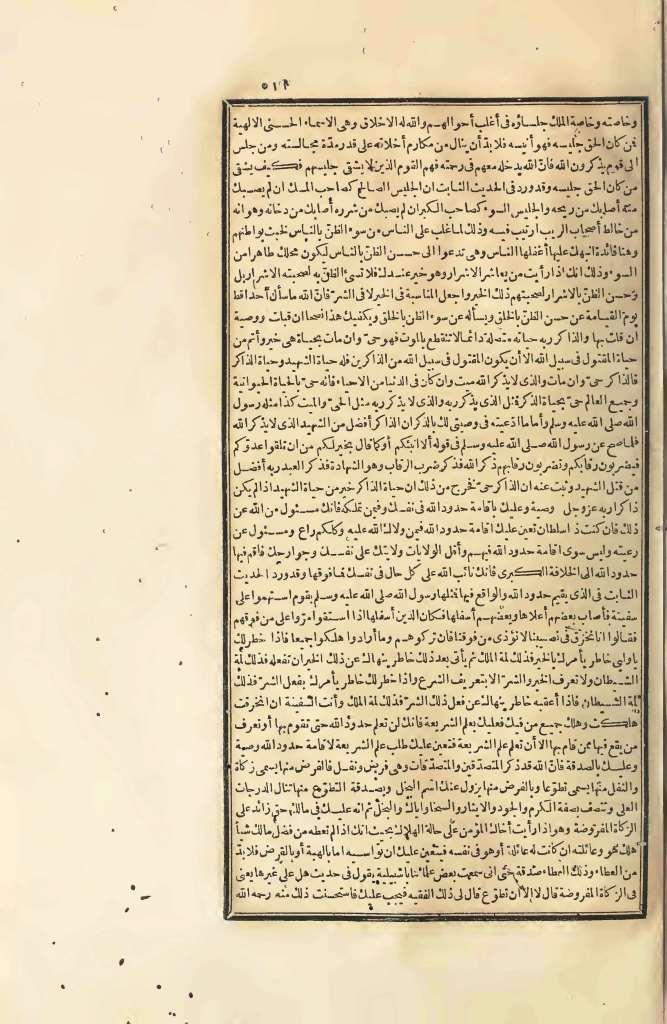 ٥١٨
وخاصته وخاصة الملك جلساؤه في أغلب أحوالهم والله له الاخلاق وهي الاسماء الحسنى الالهية
فمن كان الحق جليسه فهو أنيسه فلا بد أن ينال من مكارم أخلاقه على قدر مدة مجالسته ومن جلس
الى قوم يذكرون الله فان الله يدخله معهم في رحمته فهم القوم الذين لا يشقى جليسهم فكيف يشقى
من كان الحق جليسه وقد ورد في الحديث الثابت ان الجليس الصالح كصاحب المسك ان لم يصبك
منه أصابك من ريحه والجليس السوء كصاحب الكير ان لم يصبك من شرره أصابك من دخانه وهو انه
من خالط أصحاب الريب ارتيب فيه وذلك لما غلب على الناس من سوء الظن بالناس لخبث بواطنهم
وهنا فائدة أنبهك عليها أغفلها الناس وهي تدعوا الى حسن الظن بالناس ليكون محلك طاهرا من
السوء وذلك انك اذا رأيت من يعاشر الاشرار وهو خير عندك فلا تسيء الظن به لصحبته الاشرار بل
وحسن الظن بالاشرار لصحبتهم ذلك الخير واجعل المناسبة في الخير لا في الشر فان الله ما سأل أحدا قط
يوم القيامة عن حسن الظن بالخلق ويسأله عن سوء الظن بالخلق ويكفيك هذا نصحا ان قبلت ووصية
ان قلت بها والذاكر ربه حياته متصلة دائما لا تنقطع بالموت فهو حي وان مات بحياة هي خير وأتم من
حياة المقتول في سبيل الله الا أن يكون المقتول في سبيل الله من الذاكرين فله حياة الشهيد وحياة الذاكر
فالذاكر حي وان مات والذي لا يذكر الله ميت وان كان في الدنيا من الاحياء فانه حي بالحياة الحيوانية
وجميع العالم حي بحياة الذكر فمثل الذي يذكر ربه والذي لا يذكر ربه مثل الحي والميت كذا مثله رسول
الله صلى الله عليه وسلم وأما ما ادعيته في وصيتي لك بالذكر ان الذاكر أفضل من الشهيد الذي لا يذكر الله
فلما صح عن رسول الله صلى الله عليه وسلم في قوله ألا أنبئكم أو كما قال بخير لكم من ان تلقوا عدوكم
فيضربون رقابكم وتضربون رقابهم ذكر الله فذكر ضرب الرقاب وهو الشهادة فذكر العبد ربه أفضل
من قتل الشهيد وثبت عنه ان الذاكر حي فخرج من ذلك ان حياة الذاكر خير من حياة الشهيد اذا لم يكن
ذاكرا ربه عز وجل وصية وعليك باقامة حدود الله في نفسك وفيمن تملكه فانك مسئول من الله عن
ذلك فان كنت ذا سلطان تعين عليك اقامة حدود الله فيمن ولاك الله عليه وكلكم راع ومسئول عن
رعيته وليس سوى اقامة حدود الله فيهم وأقل الولايات ولايتك على نفسك وجوارحك فاقم فيها
حدود الله الى الخلافة الكبرى فانك نائب الله على كل حال في نفسك فما فوقها وقد ورد الحديث
الثابت في الذي يقيم حدود الله والواقع فيها فمثلها رسول الله صلى الله عليه وسلم بقوم استهموا على
سفينة فأصاب بعضهم أعلاها وبعضهم أسفلها فكان الذين أسفلها اذا استقوا مروا على من فوقهم
فقالوا انا نخرق في نصيبنا لا نؤذي من فوقنا فان تركوهم وما أرادوا هلكوا جميعا فاذا خطر لك
يا ولي خاطر يأمرك بالخير فذلك لمة الملك ثم يأتي بعد ذلك خاطر ينهاك عن ذلك الخير ان تفعله فذلك لمة
الشيطان ولا تعرف الخير والشر الا بتعريف الشرع واذا خطر لك خاطر يأمرك بفعل الشر فذلك
لمة الشيطان فاذا أعقبه خاطر ينهاك عن فعل ذلك الشر فذلك لمة الملك وأنت السفينة ان انخرقت
هلكت وهلك جميع من فيك فعليك بعلم الشريعة فانك لن تعلم حدود الله حتى تقوم بها أو تعرف
من يقع فيها ممن قام بها الا أن تعلم علم الشريعة فتعين عليك طلب علم الشريعة لاقامة حدود الله وصية
وعليك بالصدقة فان الله قد ذكر المتصدقين والمتصدقات وهي فرض ونفل فالفرض منها يسمى زكاة
والنفل منها يسمى تطوعا وبالفرض منها يزول عنك اسم البخل وبصدقة التطوع منها تنال الدرجات
العلى وتتصف بصفة الكرم والجود والايثار والسخاء واياك والبخل ثم انه عليك في مالك حق زائد على
الزكاة المفروضة وهو اذا رأيت أخاك المؤمن على حالة الهلاك بحيث انك اذا لم تعطه من فضل مالك شيأ
هلك هو وعائلته ان كانت له عائلة أو هو في نفسه فيتعين عليك ان تواسيه اما بالهبة أو بالقرض فلا بد
من العطاء وذلك العطاء صدقة حتى اني سمعت بعض علمائنا باشبيلية يقول في حديث هل علي غيرها يعني
في الزكاة المفروضة قال لا الا أن تطوع قال لي ذلك الفقيه فيجب عليك فاستحسنت ذلك منه رحمه الله